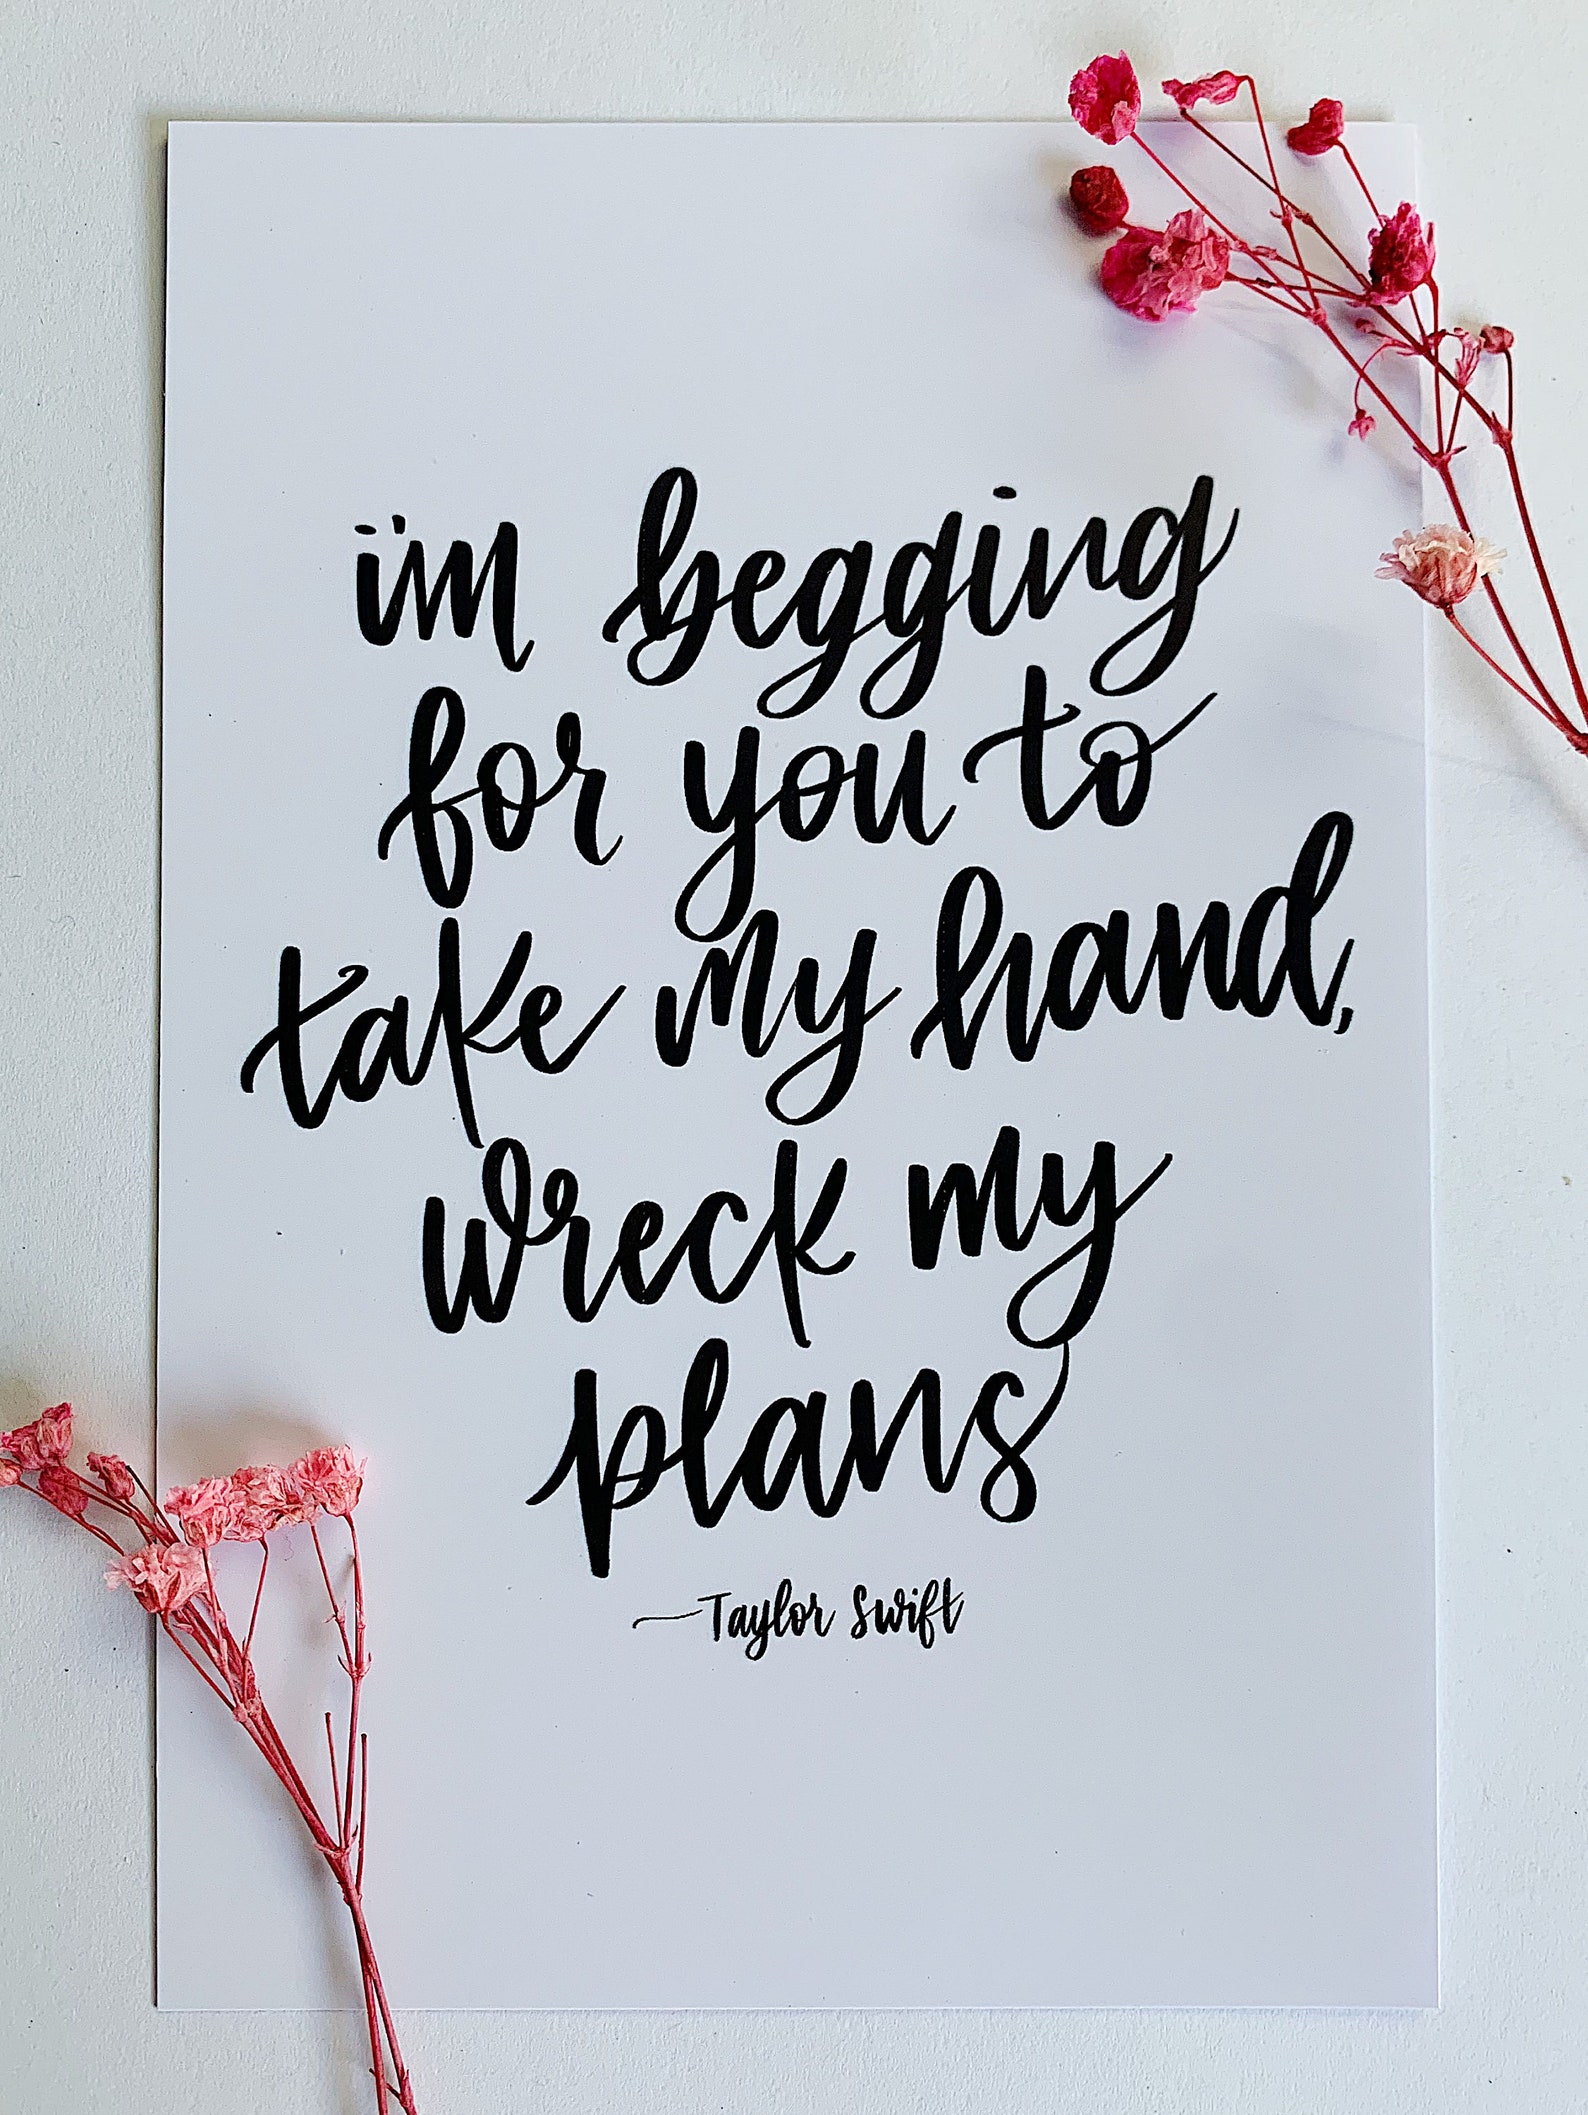 i'm begging
for you to
take my hand,
wreck my
plans
—Taylor Swift